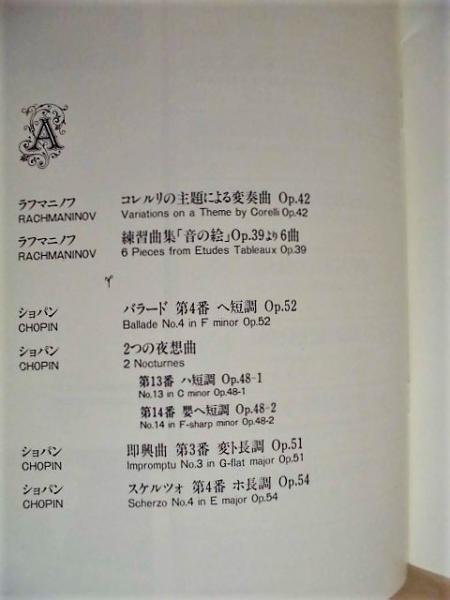 A
ラフマニノフ コレルリの主題による変奏曲 Op.42
RACHMANINOV Variations on a Theme by Corelli Op.42
ラフマニノフ 練習曲集「音の絵」Op.39より6曲
RACHMANINOV 6 Pieces from Etudes Tableaux Op.39
ショパン バラード 第4番 ヘ短調 Op.52
CHOPIN Ballade No.4 in F minor Op.52
ショパン 2つの夜想曲
CHOPIN 2 Nocturnes
第13番 ハ短調 Op.48-1
No.13 in C minor Op.48-1
第14番 嬰ヘ短調 Op.48-2
No.14 in F-sharp minor Op.48-2
ショパン 即興曲 第3番 変ト長調 Op.51
CHOPIN Impromptu No.3 in G-flat major Op.51
ショパン スケルツォ 第4番 ホ長調 Op.54
CHOPIN Scherzo No.4 in E major Op.54